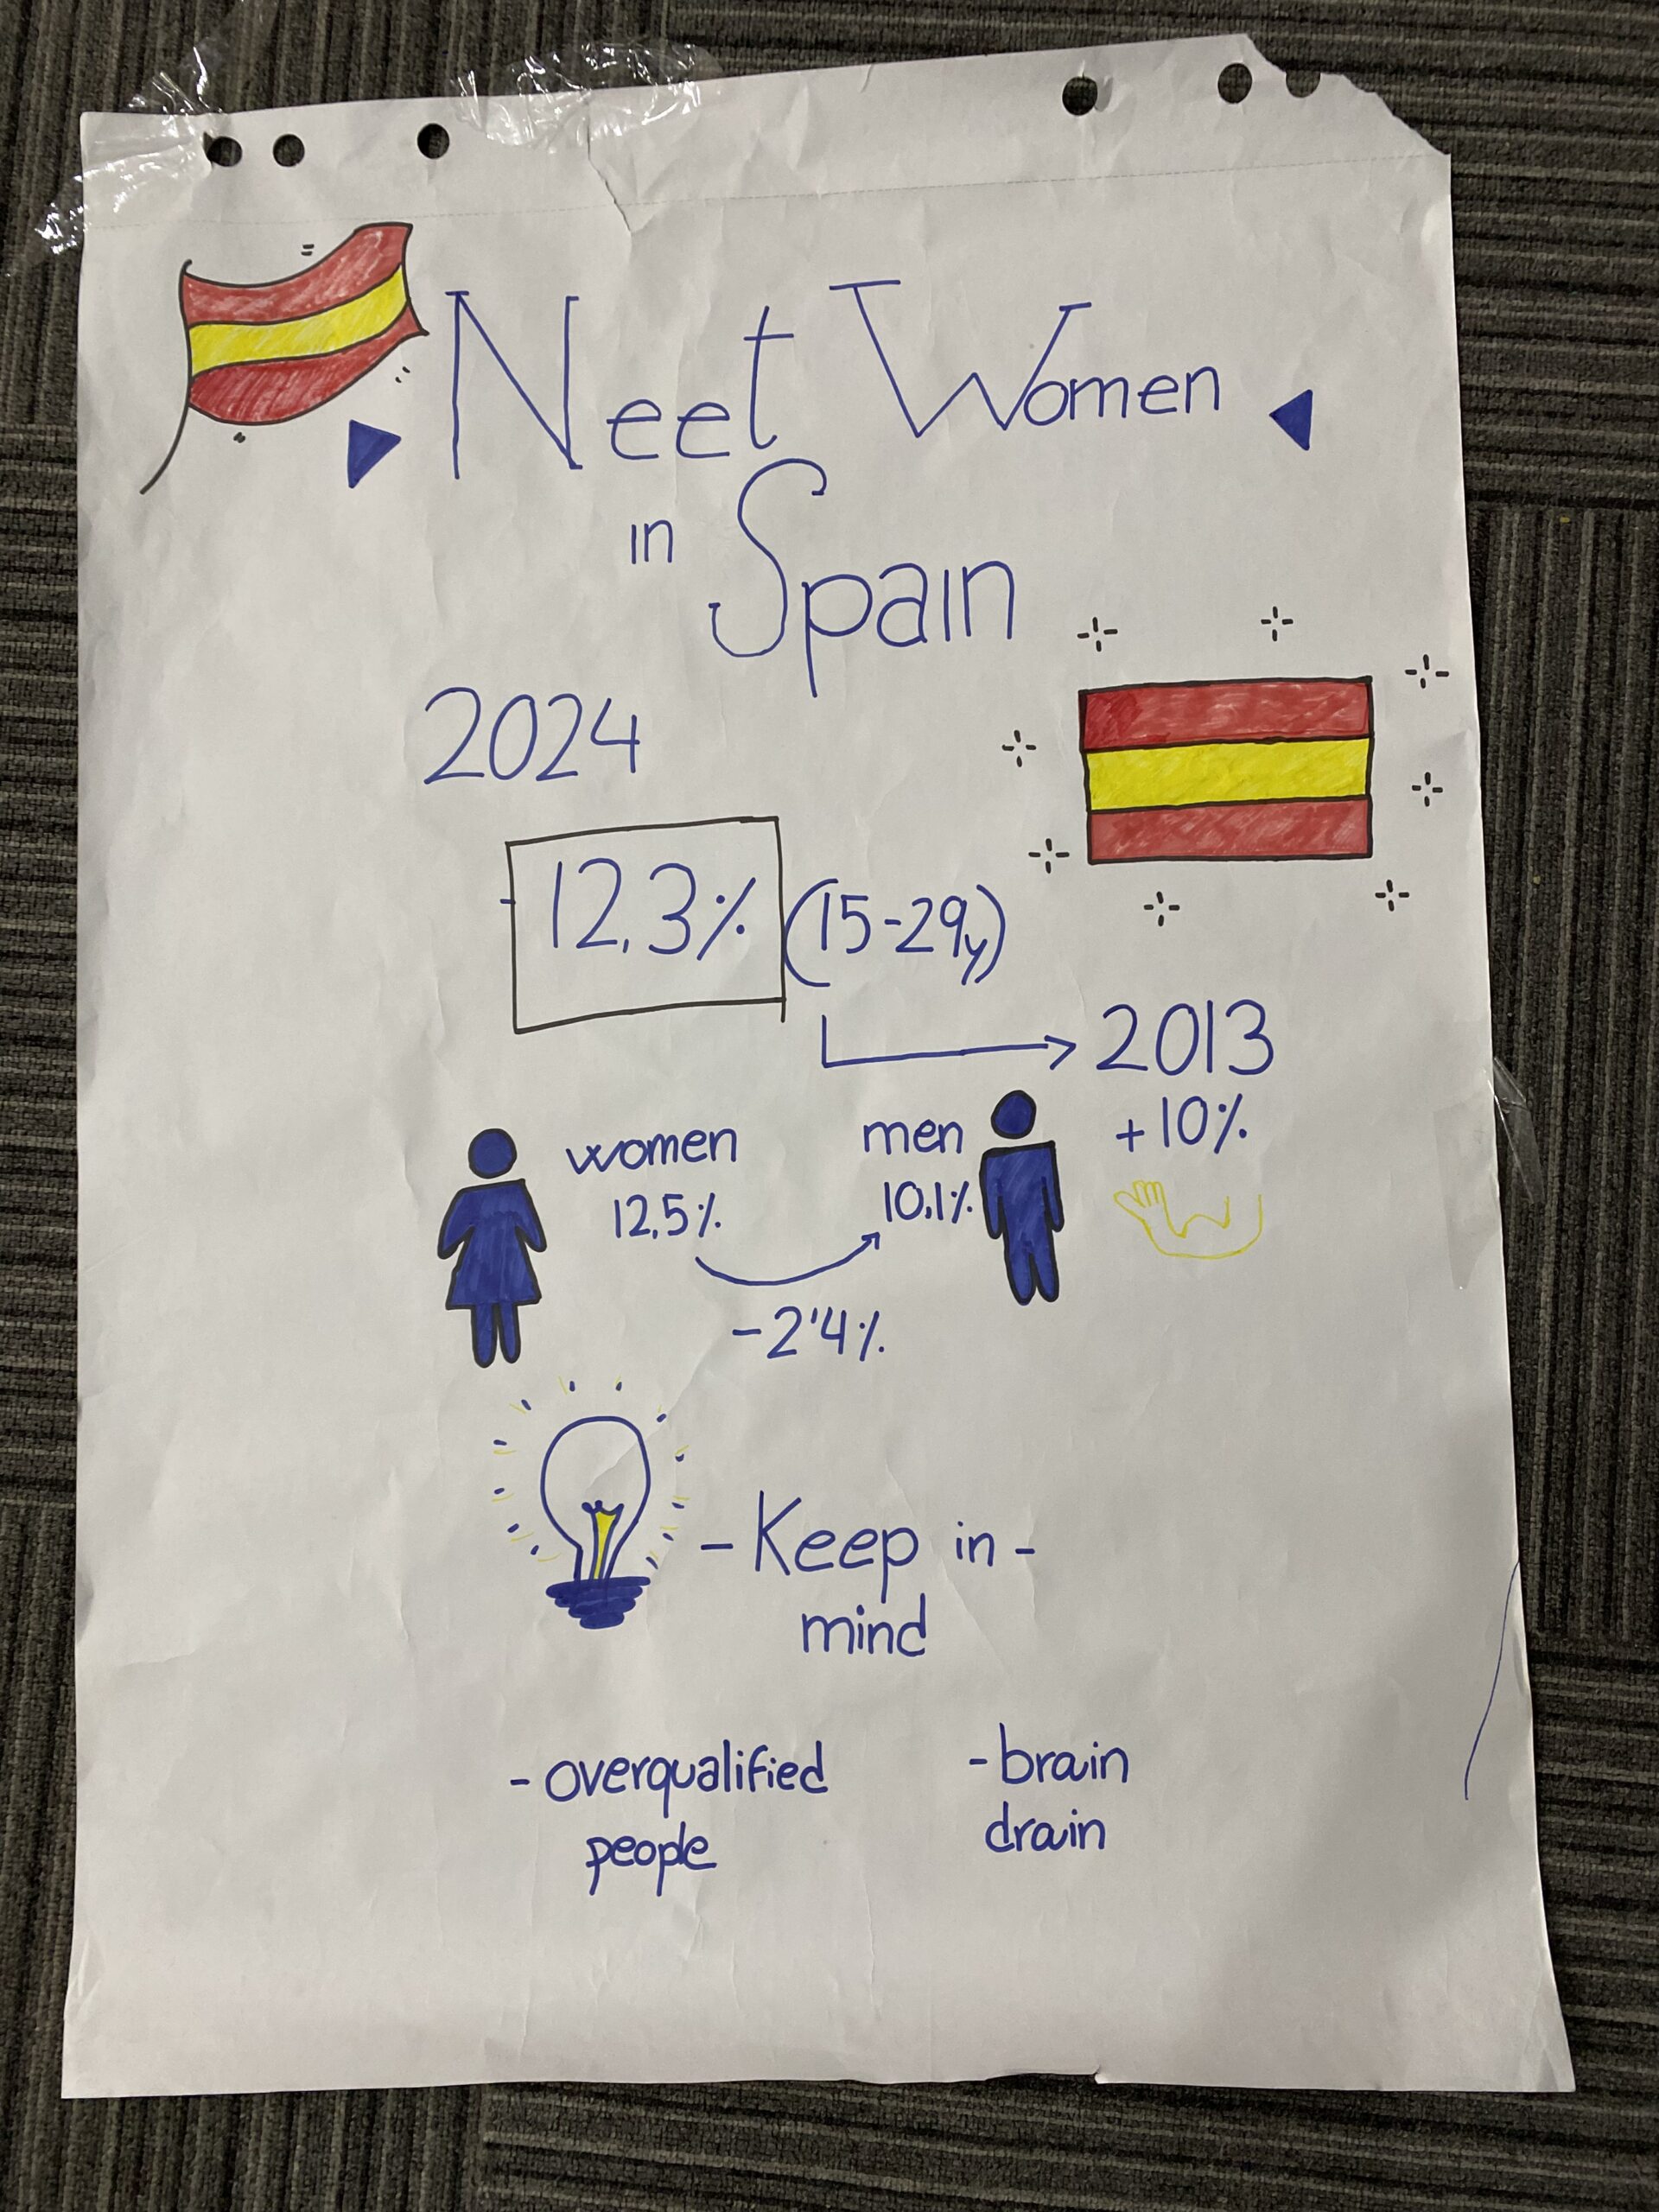 Neet Women
in Spain
2024
12,3% (15-29y)
2013
+10%
women
12,5%
men
10,1%
-2'4%
- Keep in -
mind
- overqualified
people
- brain
drain